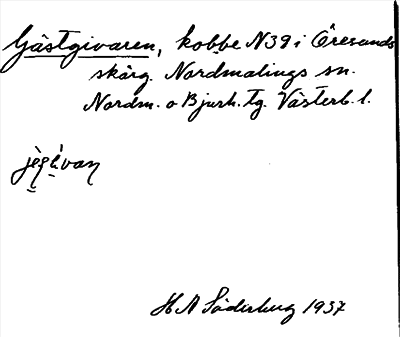 Gästgivaren, kobbe N39 i Öresunds
skärg. Nordmalings sn.
Nordm. o Bjurh. tg. Västerb. l.
H A Söderberg 1937